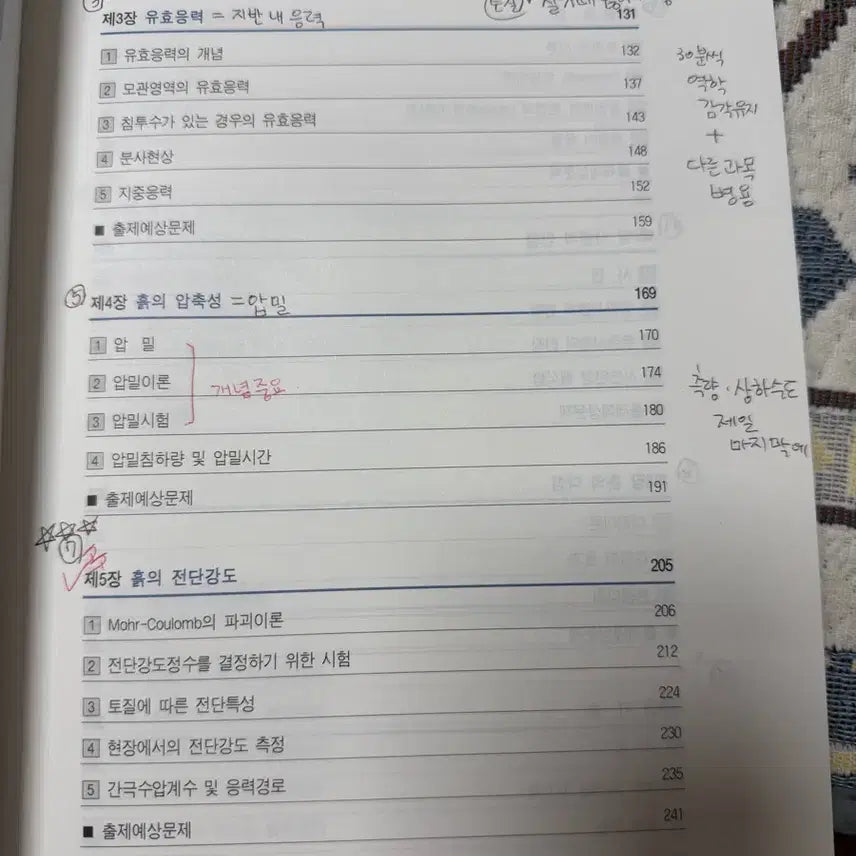 토질
제3장 유효응력 = 지반 내 응력 131
1 유효응력의 개념 132
2 모관영역의 유효응력 137
3 침투수가 있는 경우의 유효응력 143
4 분사현상 148
5 지중응력 152
■ 출제예상문제 159
30분씩
역학
감각유지
+
다른과목
병용
⑤ 제4장 흙의 압축성 = 압밀 169
1 압 밀 170
2 압밀이론 174
3 압밀시험 180
개념중요
4 압밀침하량 및 압밀시간 186
■ 출제예상문제 191
측량·상하수도
제일
마지막에
⑦
제5장 흙의 전단강도 205
1 Mohr-Coulomb의 파괴이론 206
2 전단강도정수를 결정하기 위한 시험 212
3 토질에 따른 전단특성 224
4 현장에서의 전단강도 측정 230
5 간극수압계수 및 응력경로 235
■ 출제예상문제 241